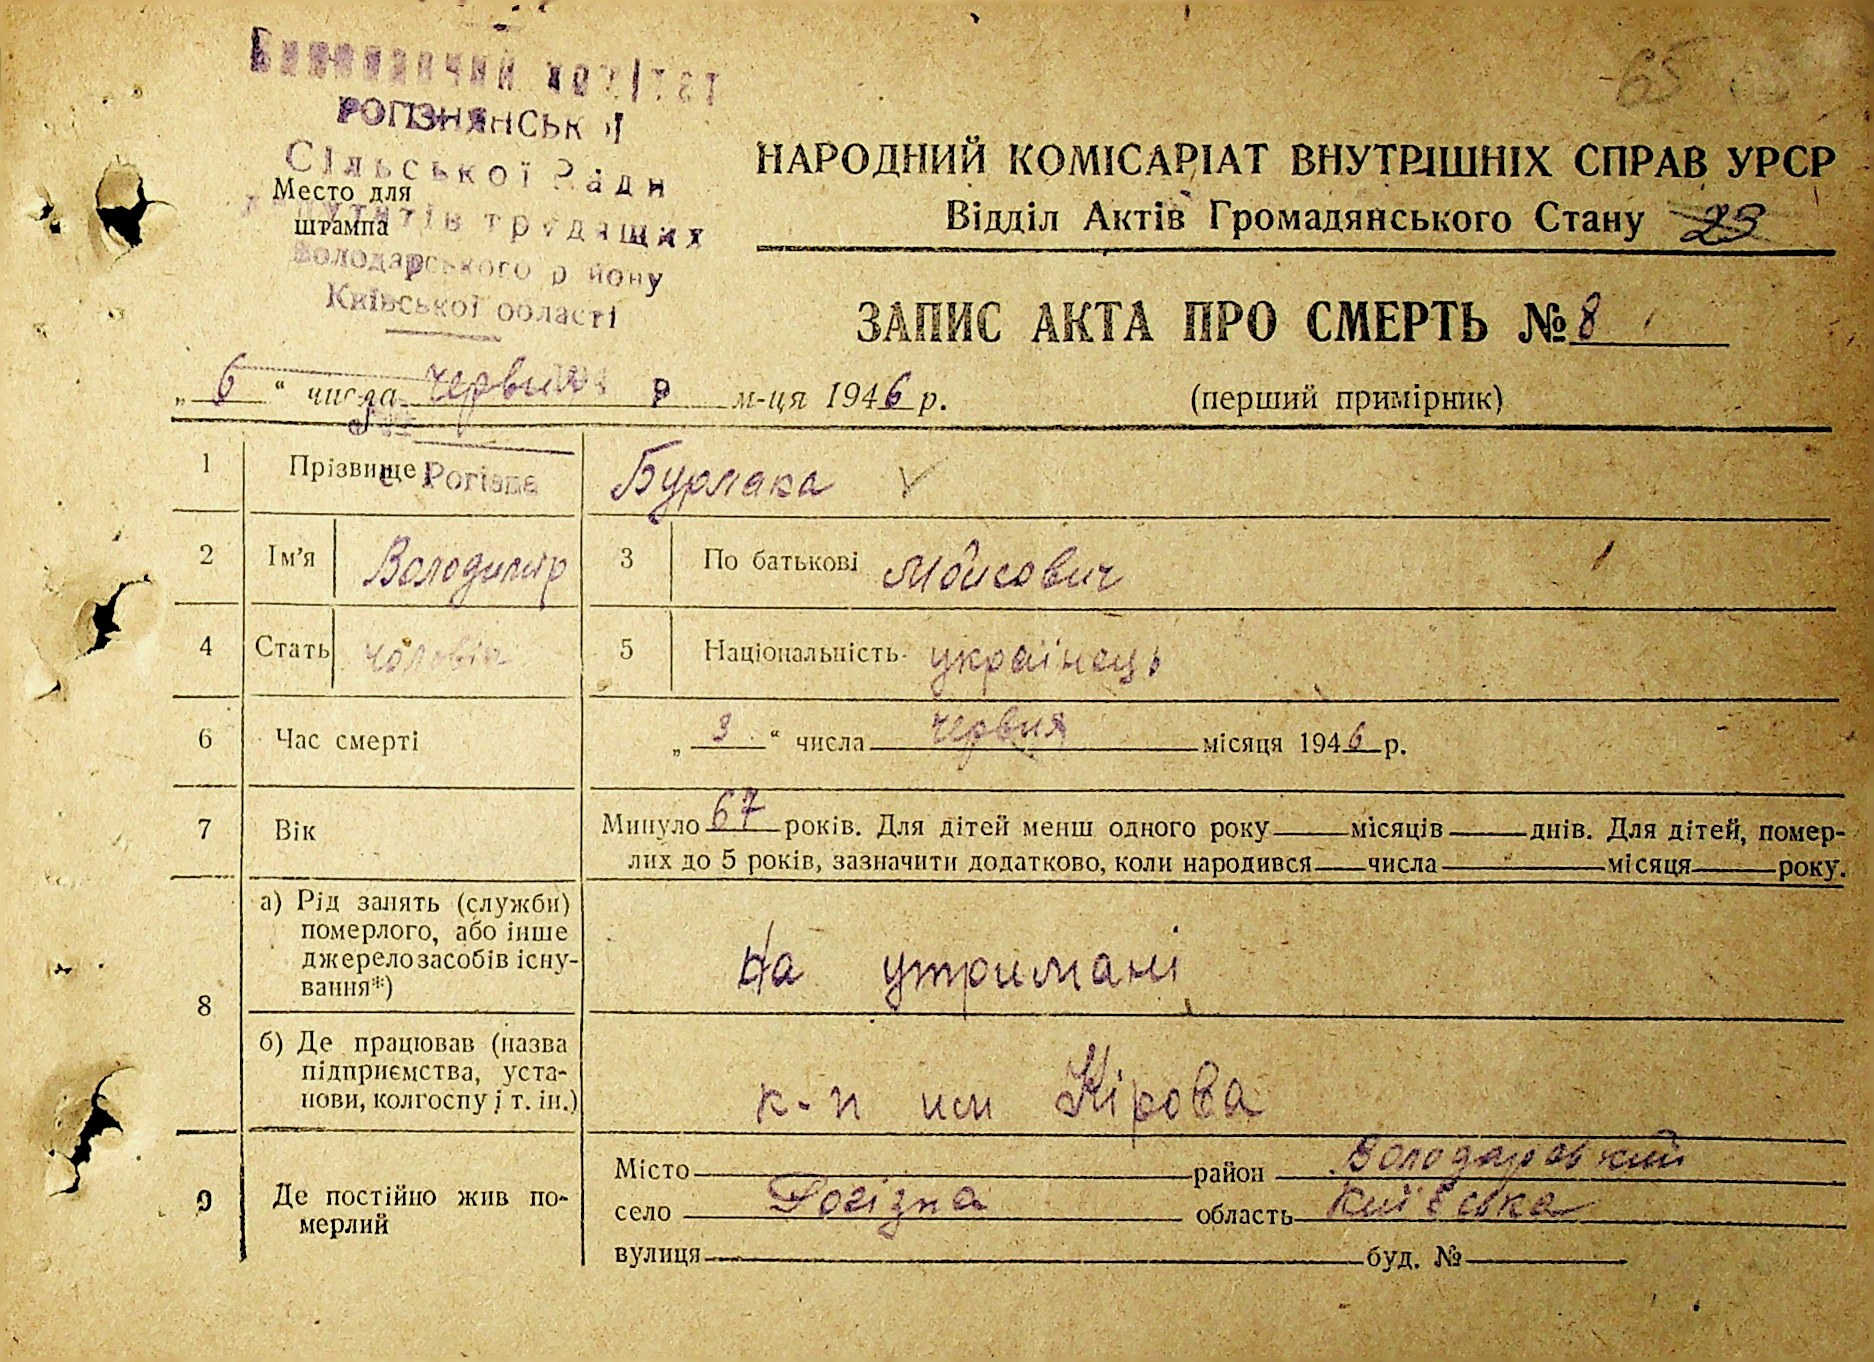 Виконавчий комітет
РОГІЗНЯНСЬКОЇ
Сільської Ради
депутатів трудящих
Володарського району
Київської області
Место для
штампа
65
НАРОДНИЙ КОМІСАРІАТ ВНУТРІШНІХ СПРАВ УРСР
Відділ Актів Громадянського Стану 29
ЗАПИС АКТА ПРО СМЕРТЬ № 8
„ 6 “ числа червня р м-ця 1946 р.
(перший примірник)
1 Прізвище Бурлака
с. Рогізна
2 Ім'я Володимир 3 По батькові Мойсович
4 Стать чоловіч 5 Національність українець
6 Час смерті „ 3 “ числа червня місяця 1946 р.
7 Вік Минуло 67 років. Для дітей менш одного року місяців днів. Для дітей, помер-
лих до 5 років, зазначити додатково, коли народився числа місяця року.
8 а) Рід занять (служби)
померлого, або інше
джерело засобів існу-
вання*)
на утримані
б) Де працював (назва
підприємства, уста-
нови, колгоспу і т. ін.)
к-п им Кірова
9 Де постійно жив по-
мерлий
Місто район Володарський
село Рогізна область Київська
вулиця буд. №